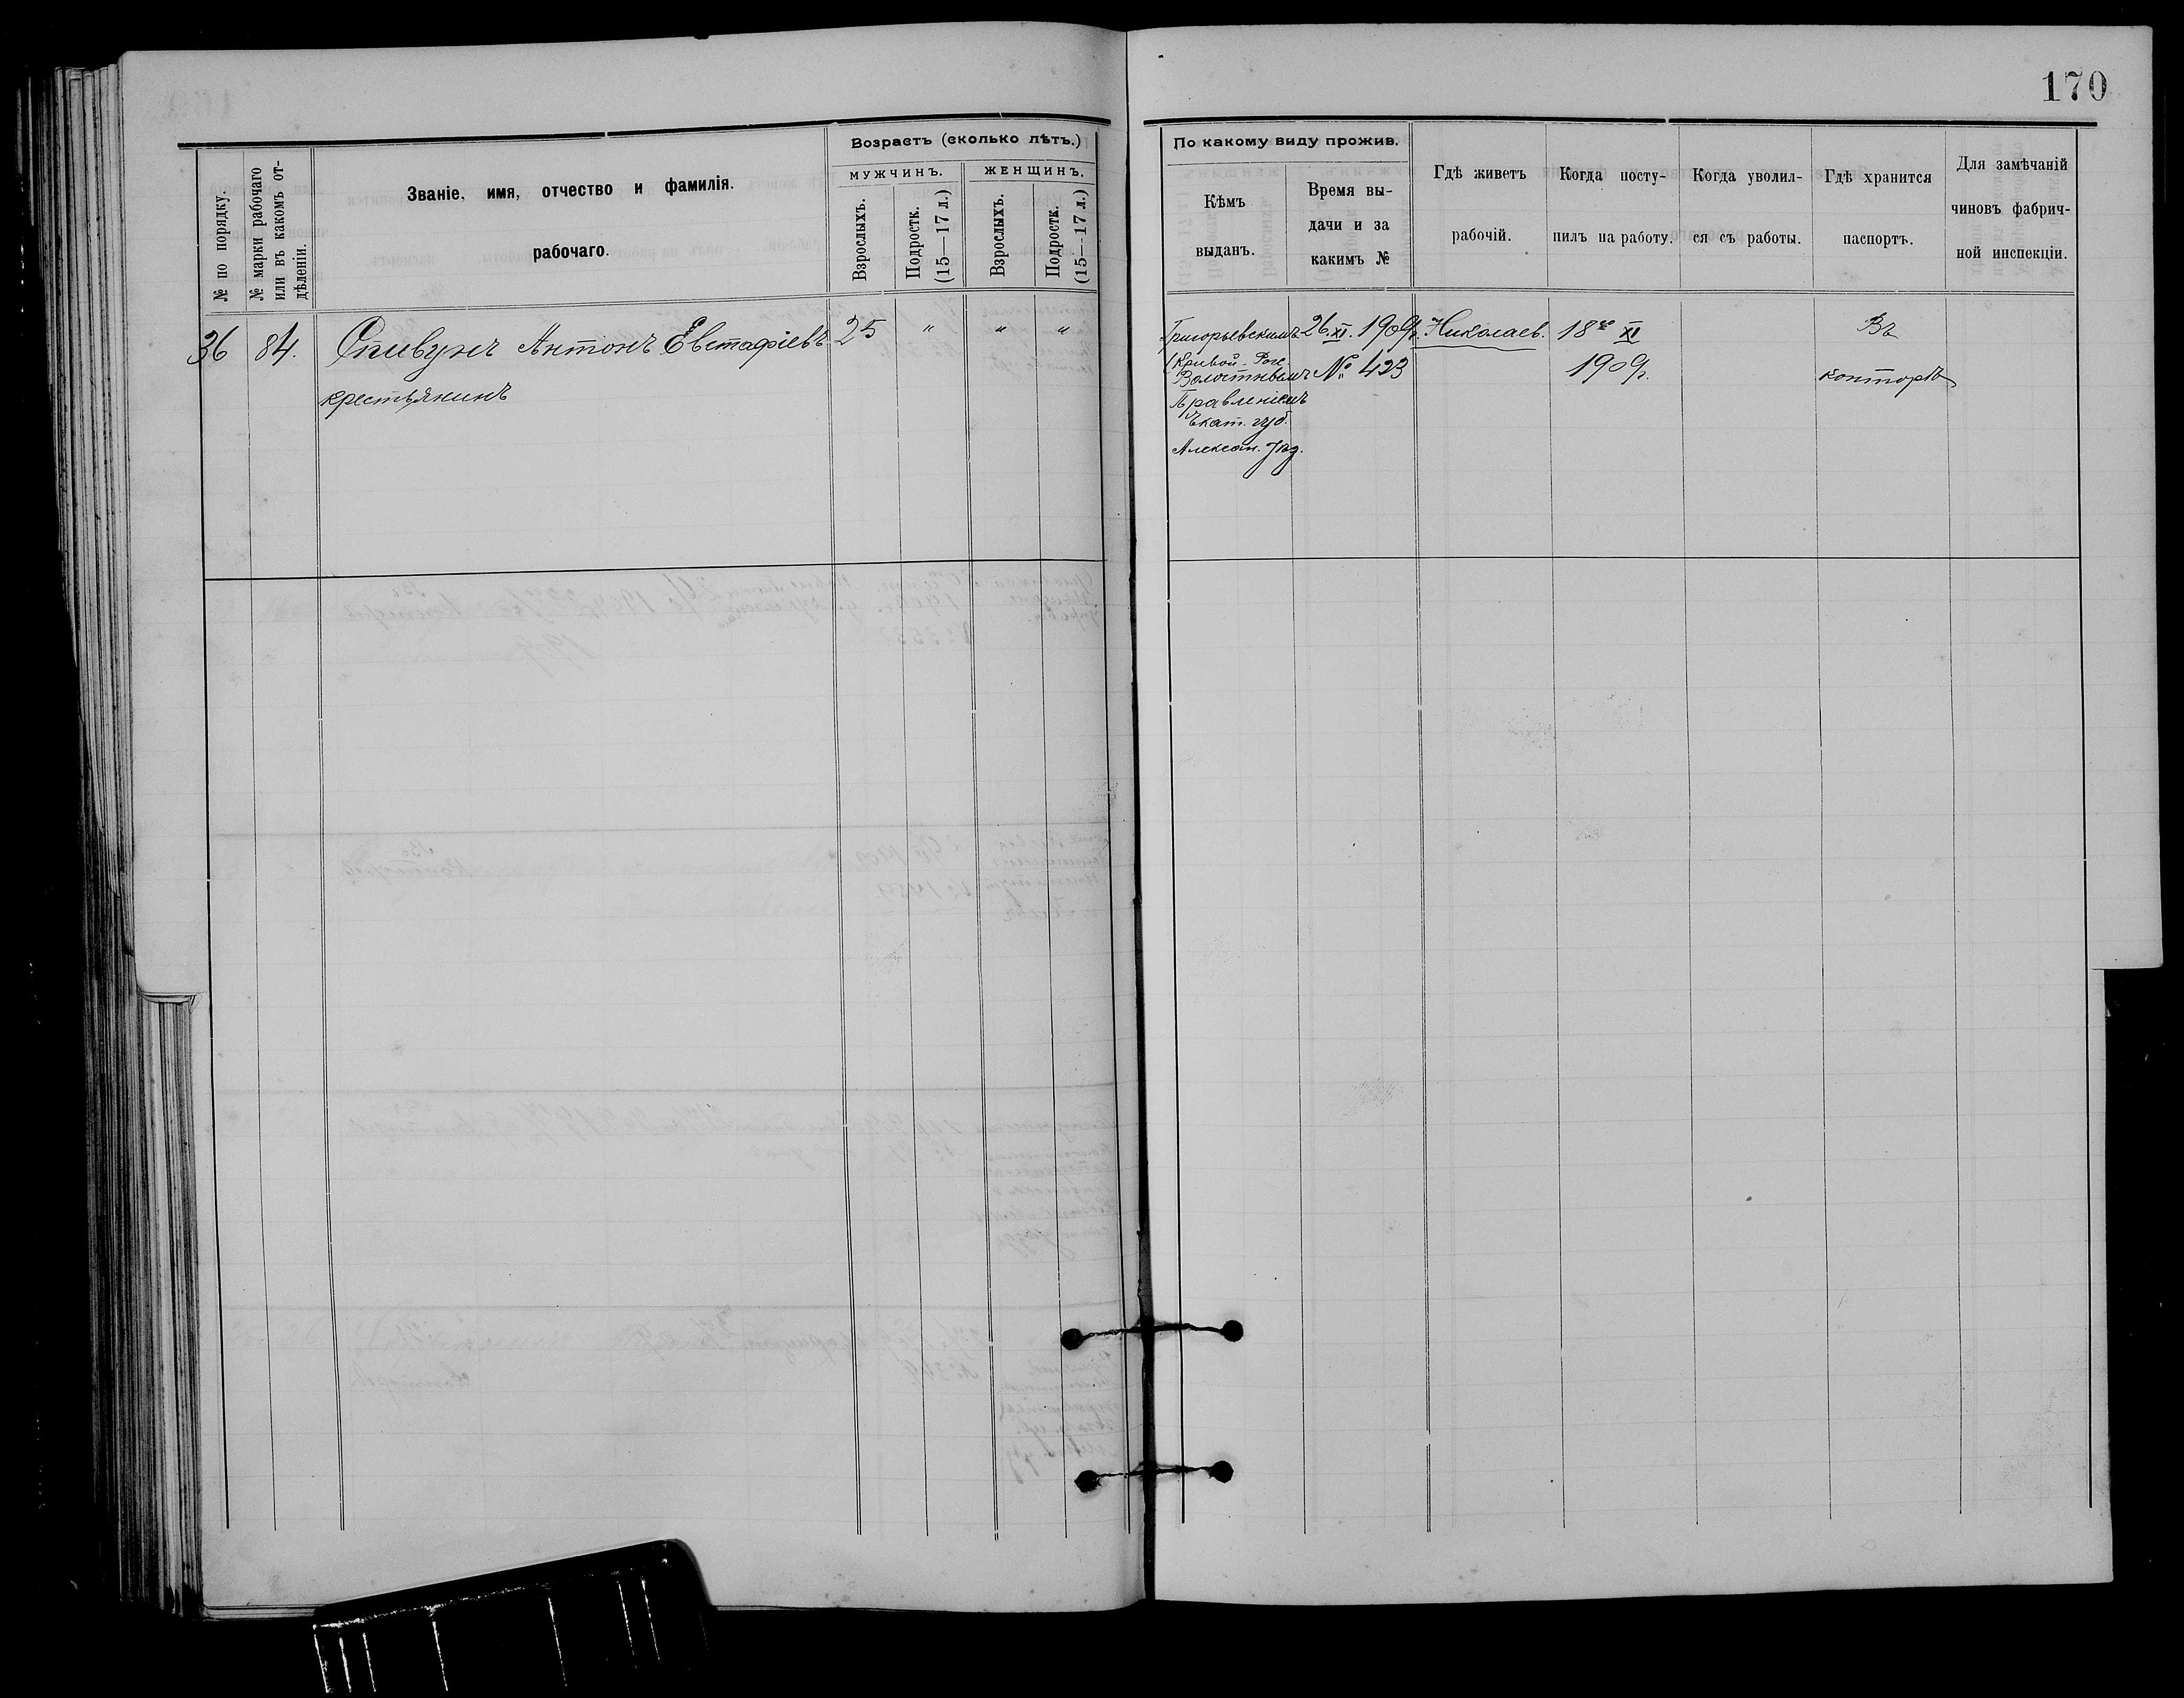 170
№ по порядку.
№ марки рабочаго
или въ какомъ от-
дѣленіи.
Званіе, имя, отчество и фамилія.
рабочаго.
Возрастъ (сколько лѣтъ.)
МУЖЧИНЪ.
ЖЕНЩИНЪ.
Взрослыхъ.
Подростк.
(15—17 л.)
Взрослыхъ.
Подростк.
(15—17 л.)
По какому виду прожив.
Кѣмъ
выданъ.
Время вы-
дачи и за
какимъ №
Гдѣ живетъ
рабочій.
Когда посту-
пилъ на работу.
Когда уволил-
ся съ работы.
Гдѣ хранится
паспортъ.
Для замѣчаній
чиновъ фабрич-
ной инспекціи.
36 84. Спивунъ Антонъ Евстафіевъ 25 " " "
крестьянинъ
Григорьевскимъ
(Кривой-Рогъ
Волостнымъ
Правленіемъ
Екат. губ.
Алексан. уѣз.
26.XI.1909г.
№ 423
Николаев.
18го XI
1909г.
Въ
конторѣ